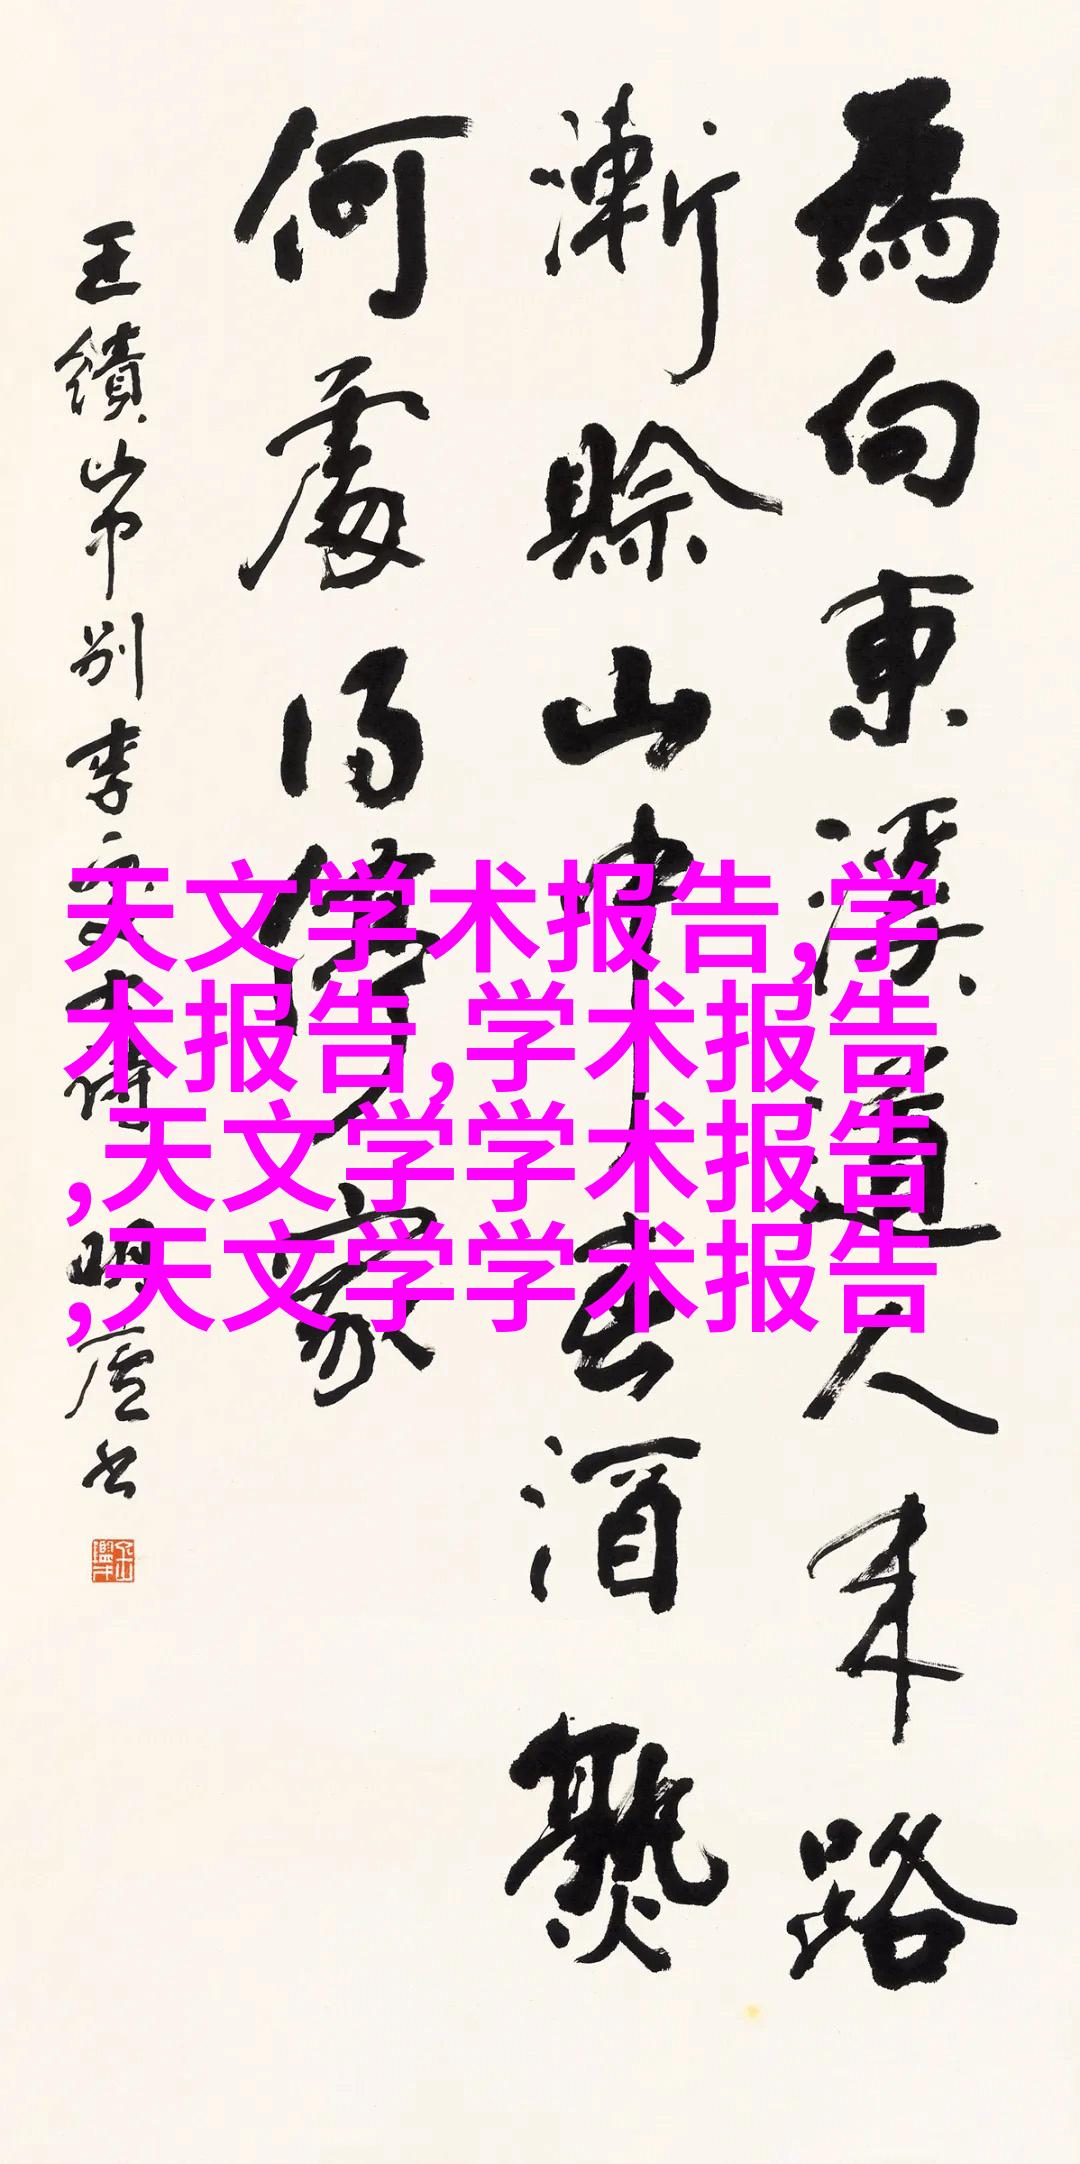 為向東溪道人来路
漸賒山中春酒熟
何處得停家
王績山中别李处士诗 明廬书
天文学术报告,学
术报告,学术报告
,天文学学术报告
,天文学学术报告